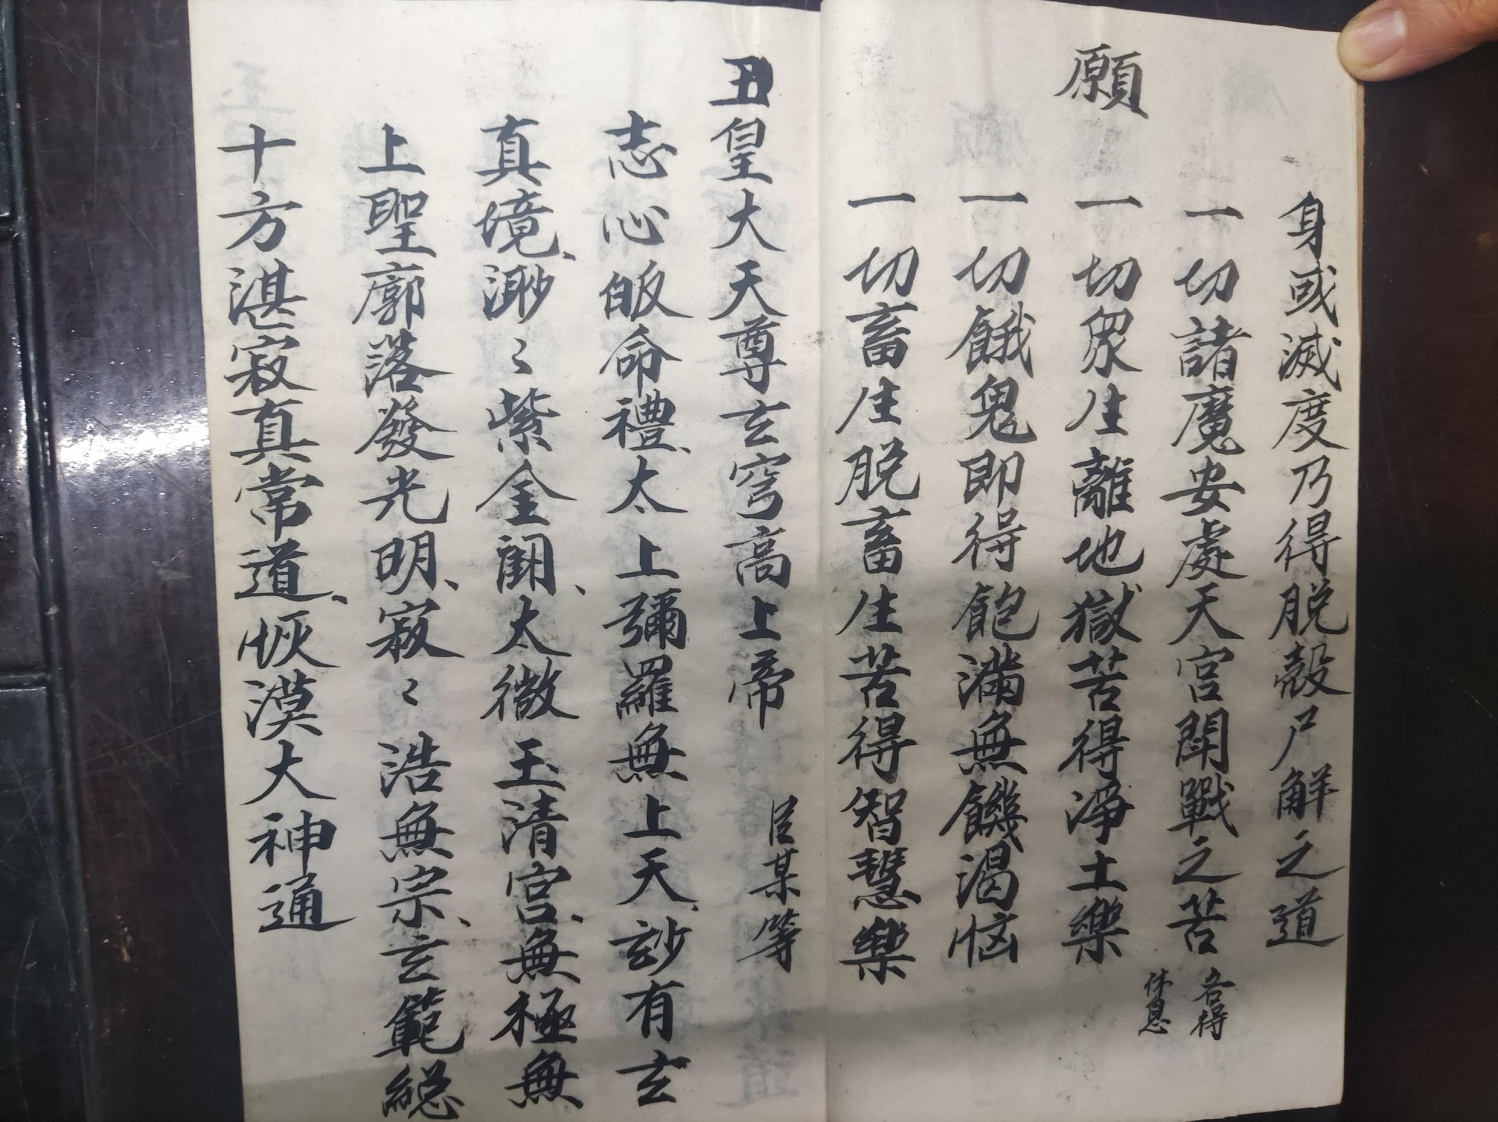 身或滅度乃得脱殼尸解之道
一切諸魔安處天宫鬪戰之苦各得休息
願
一切眾生離地獄苦得淨土樂
一切餓鬼即得飽滿無饑渴惱
一切畜生脱畜生苦得智慧樂
玉皇大天尊玄穹高上帝 臣某等
志心皈命禮、太上彌羅無上天、玅有玄
真境、渺〻紫金闕、太微玉清宫、無極無
上聖廓落發光明、寂〻浩無宗、玄範総
十方湛寂真常道、恢漠大神通